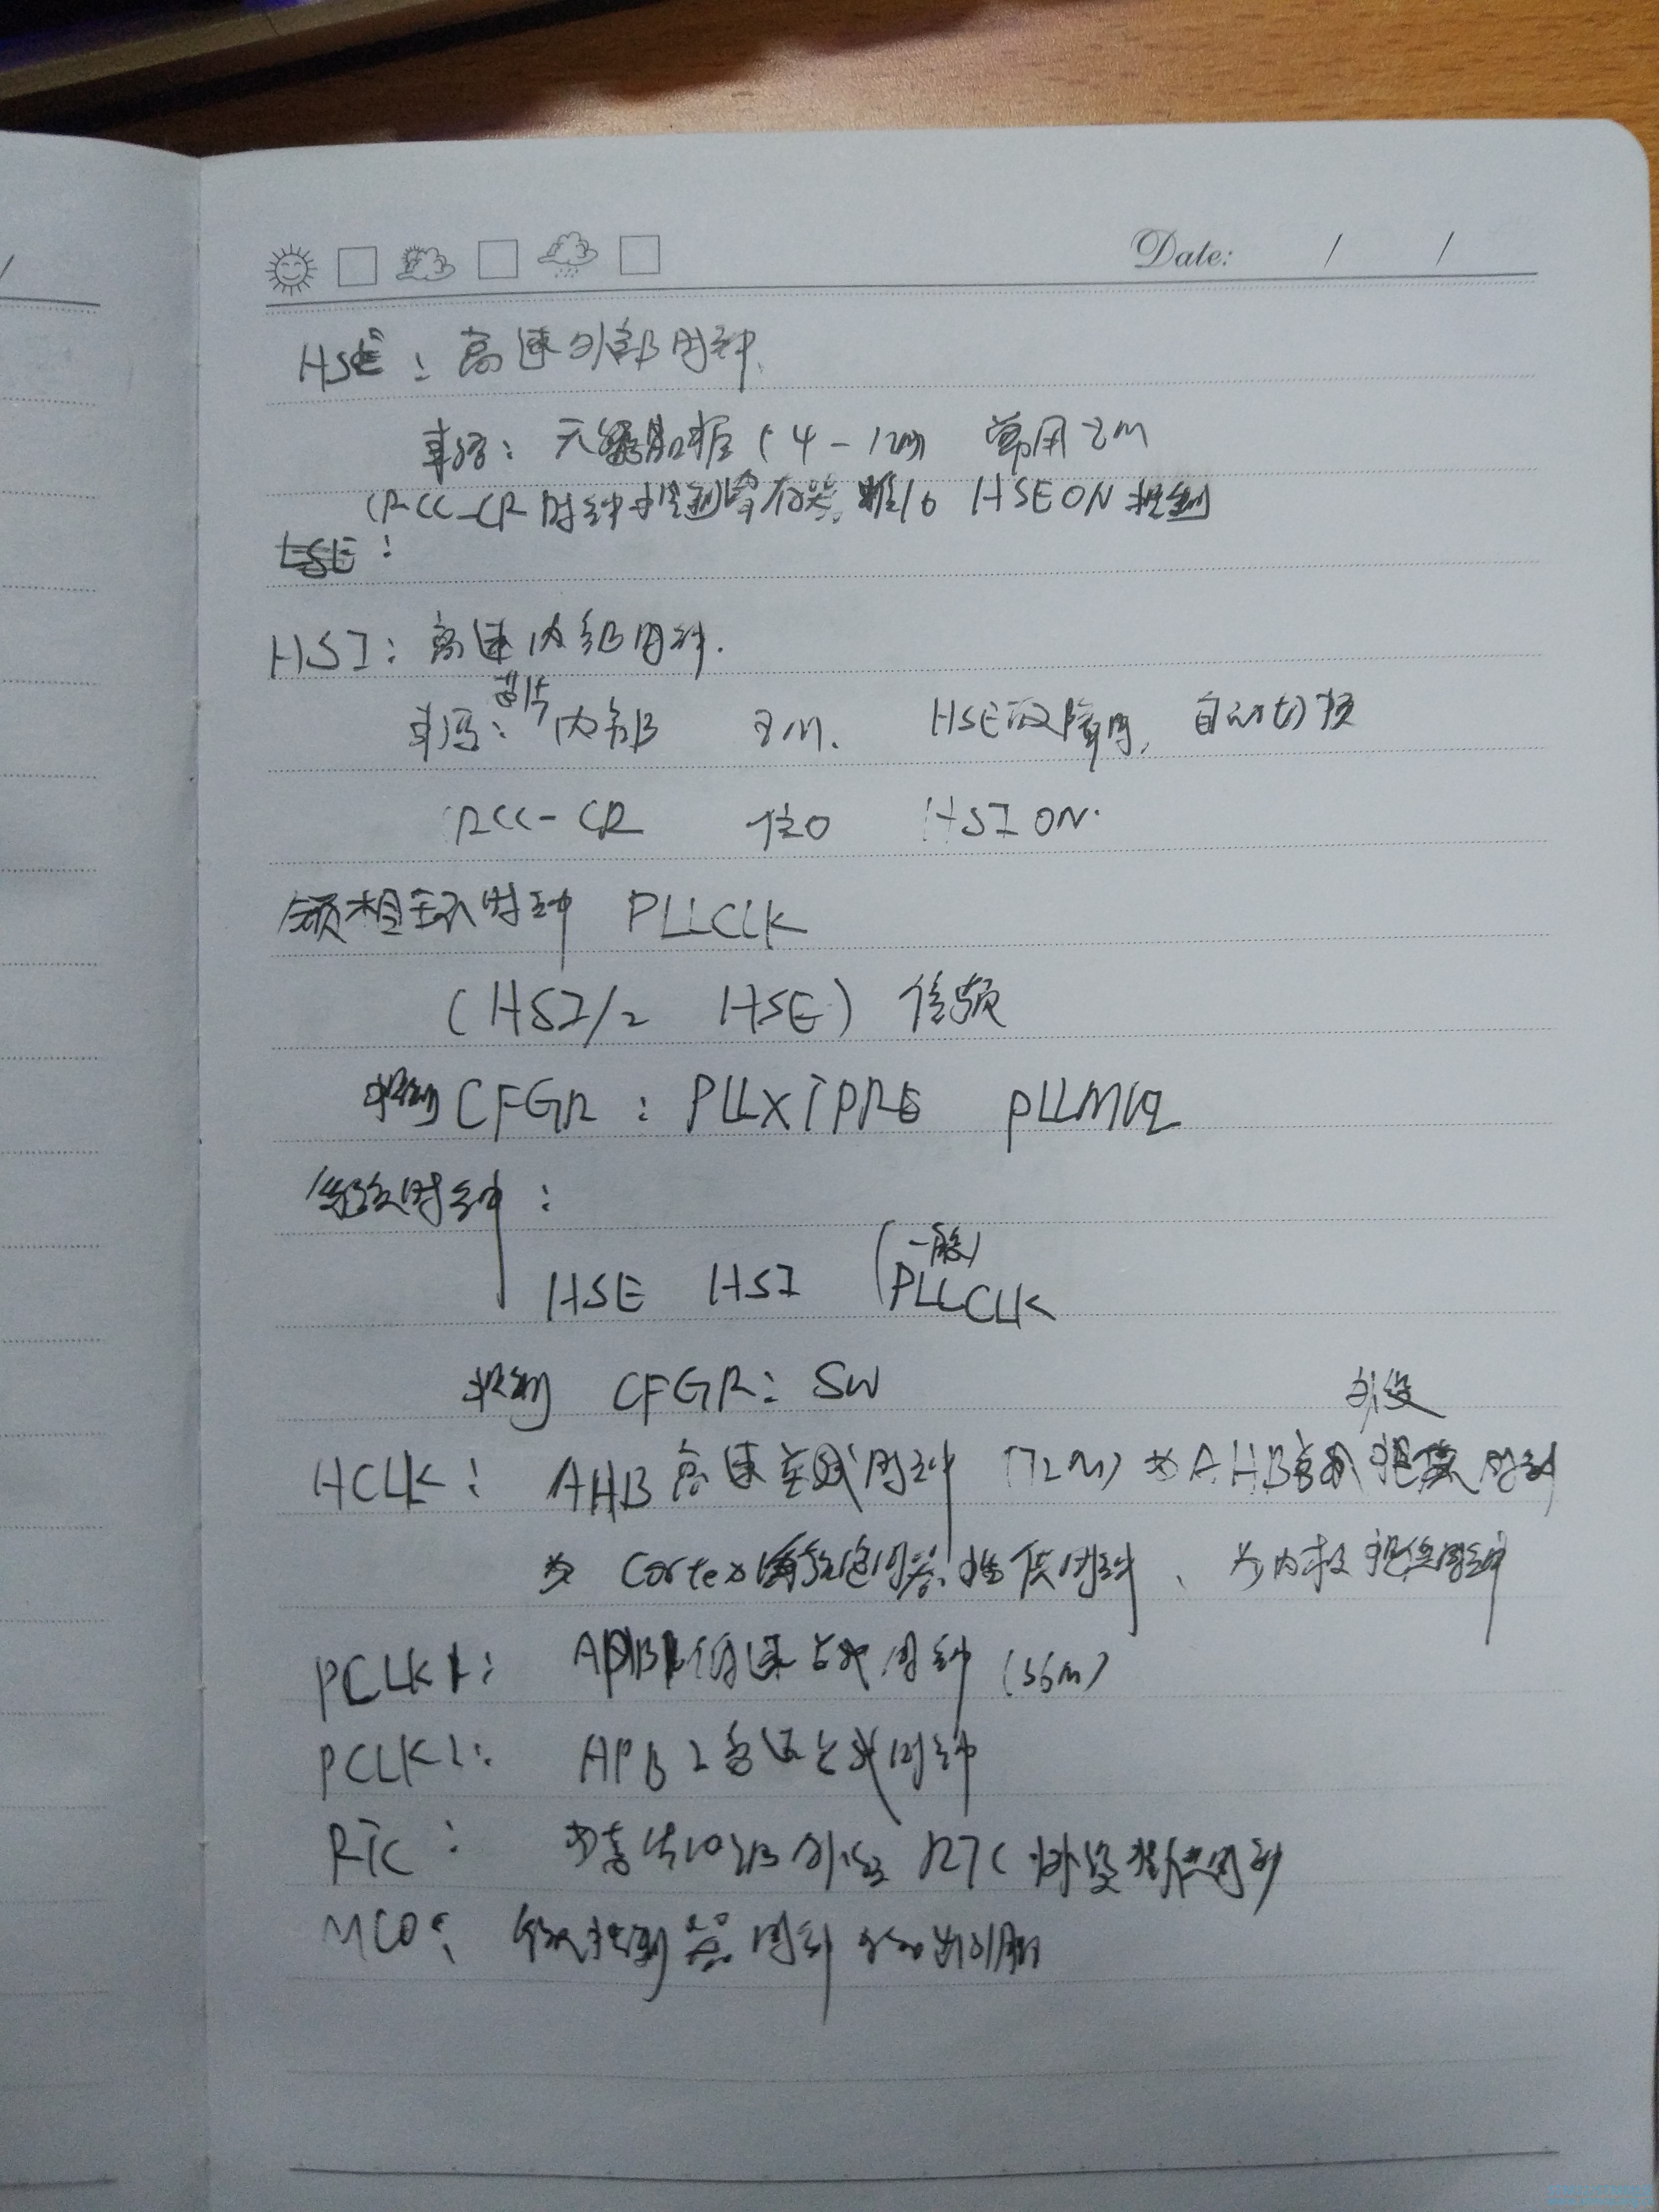 Date: / /
HSE：高速外部时钟.
来源：无源晶振（4-12m） 常用8m
（RCC-CR时钟控制寄存器，位16 HSEON控制
LSE：
HSI：高速内部时钟.
芯片
来源：内部 8m. HSE故障时，自动切换
RCC-CR 位0 HSION.
锁相环时钟 PLLCLK
（HSI/2 HSE）倍频
控制CFGR：PLLXTPRE PLLMUL
系统时钟：
（一般）
HSE HSI PLLCLK
控制 CFGR：SW
外设
HCLK：AHB高速总线时钟（72m）为AHB 提供时钟
为Cortex系统定时器提供时钟、为内核提供时钟
PCLK1：APB1低速总线时钟（36m）
PCLK2：APB2高速总线时钟
RTC： RTC外设提供时钟
MCO：微控制器时钟输出引脚